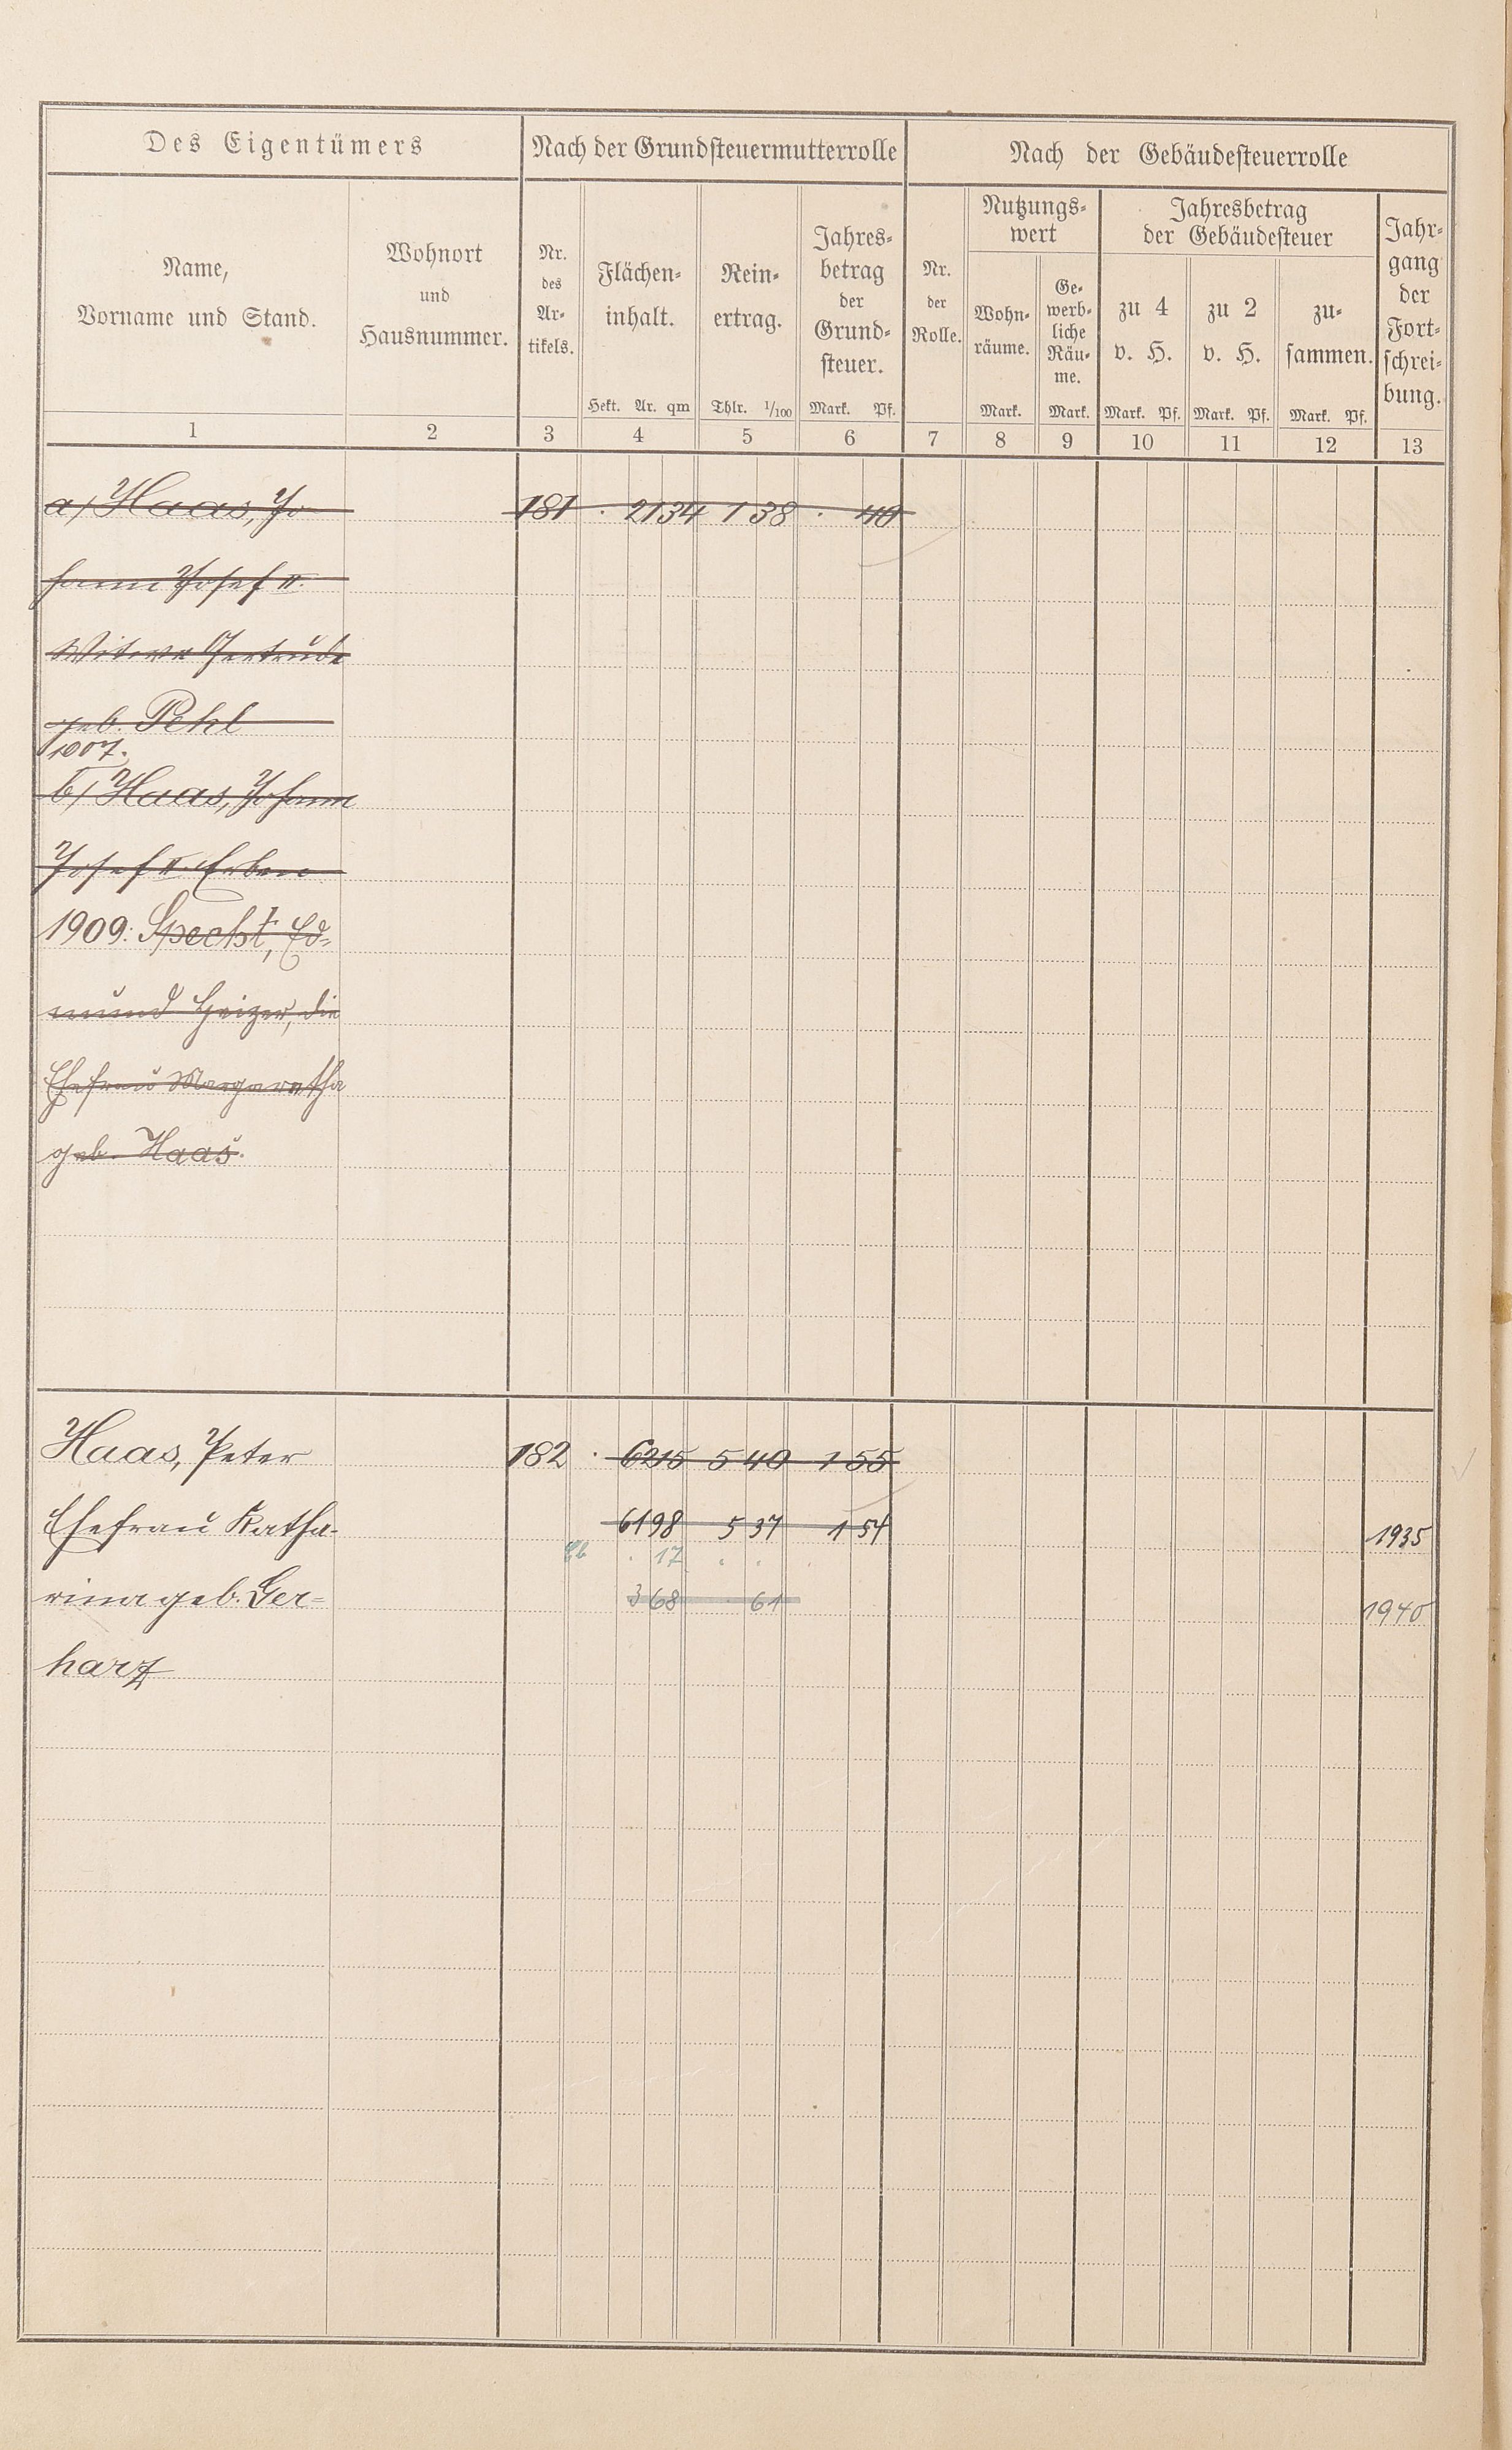 Des Eigentümers
Nach der Grundsteuermutterrolle
Nach der Gebäudesteuerrolle
Name,
Vorname und Stand.
Wohnort
und
Hausnummer.
Nr.
des
Ar-
tikels.
Flächen-
inhalt.
Hekt. Ar. qm
Rein-
ertrag.
Thlr. 1/100
Jahres-
betrag
der
Grund-
steuer.
Mark. Pf.
Nr.
der
Rolle.
Nutzungs-
wert
Wohn-
räume.
Mark.
Ge-
werb-
liche
Räu-
me.
Mark.
Jahresbetrag
der Gebäudesteuer
zu 4
v. H.
Mark. Pf.
zu 2
v. H.
Mark. Pf.
zu-
sammen.
Mark. Pf.
Jahr-
gang
der
Fort-
schrei-
bung.
1 2 3 4 5 6 7 8 9 10 11 12 13
a/ Haas, Jo- 181 . 21 34 1 38 . 40
hann Josef II.
Witwe Gertrude
geb. Pehl
1907.
b/ Haas, Johann
Josef II. Erben
1909: Specht, Ed-
mund Heizer, die
Ehefrau Margaretha
geb. Haas.
Haas, Peter 182 . 62 15 5 40 1 55
Ehefrau Katha- 61 98 5 37 1 54 1935
. 17 . . .
rina geb. Ger- 3 68 . 61 1940
harz